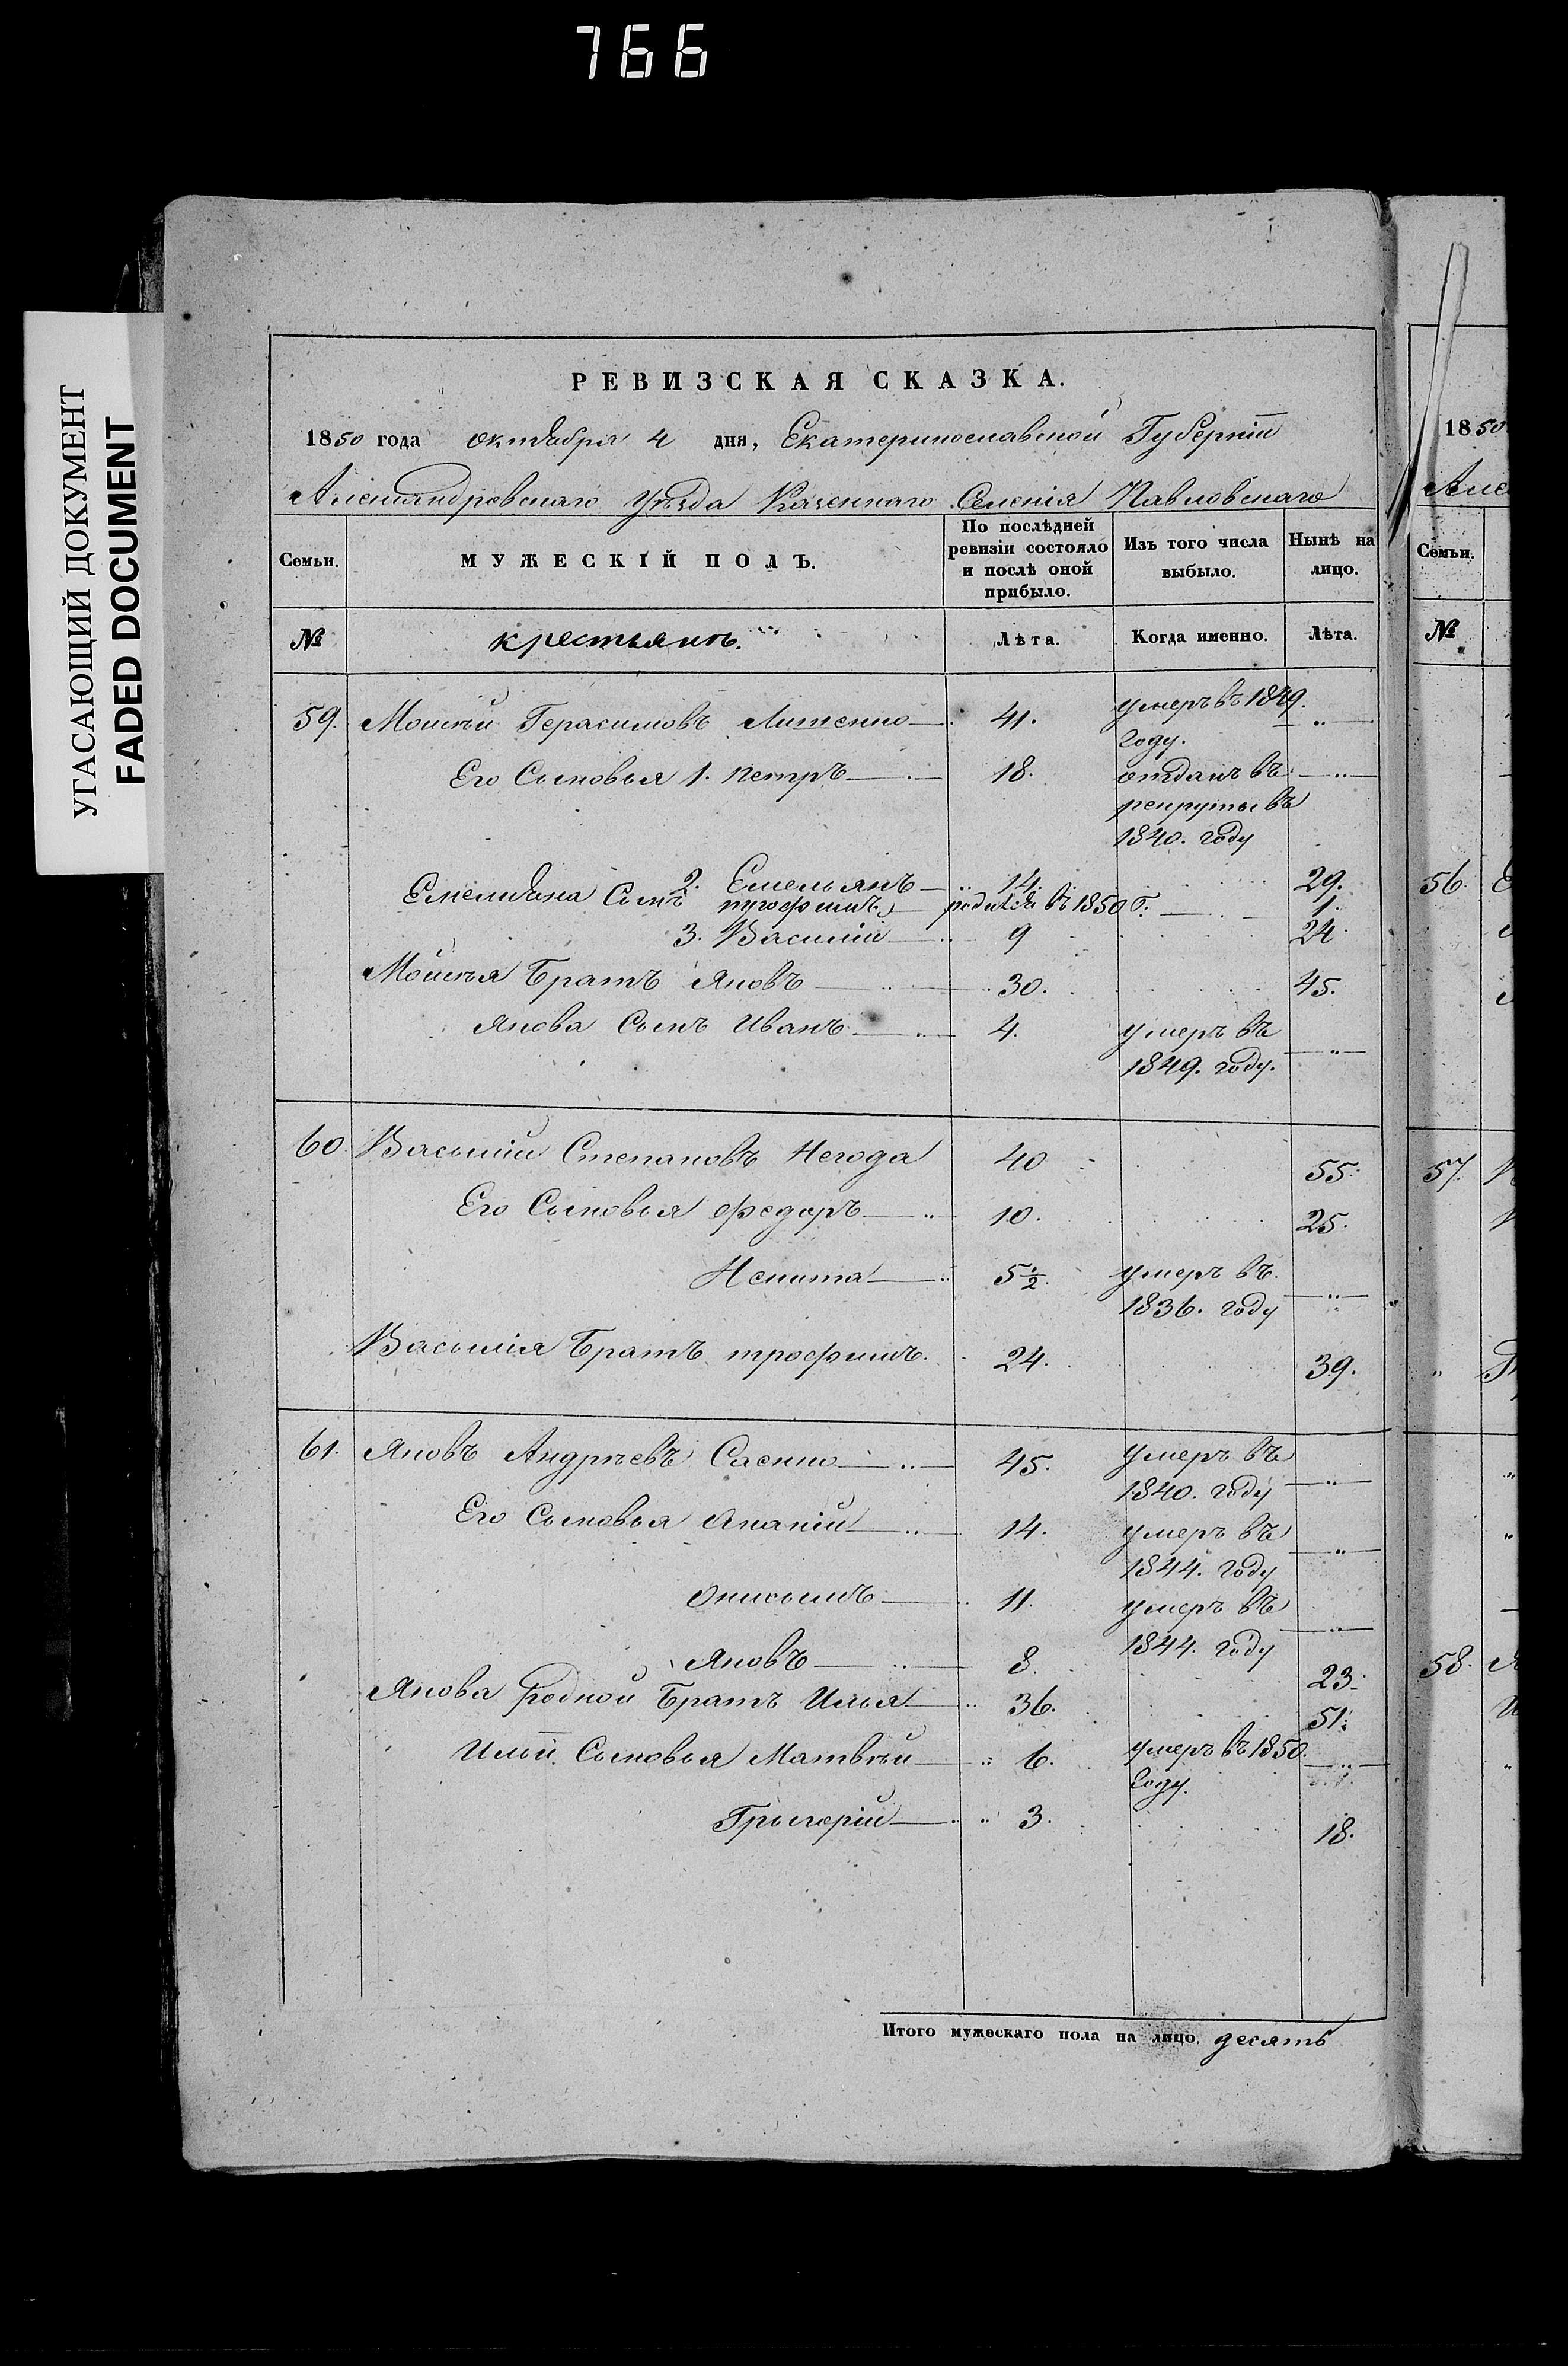 766
УГАСАЮЩИЙ ДОКУМЕНТ
FADED DOCUMENT
РЕВИЗСКАЯ СКАЗКА.
1850 года октября 4 дня, Екатеринославской Губерніи
Александровскаго Уѣзда Казеннаго Селенія Павловскаго
Семьи. МУЖЕСКІЙ ПОЛЪ. По послѣдней ревизіи состояло и послѣ оной прибыло. Изъ того числа выбыло. Нынѣ на лицо.
№ крестьянъ. Лѣта. Когда именно. Лѣта.
59. Моисѣй Герасимовъ 41. умеръ въ 1849.
году.
Его Сыновья 1. петръ 18. отданъ въ
рекруты въ
1840. году
2. Емельянъ 14. 29.
Емельяна Сынъ родился въ 1850 1.
3. Василій 9 24
Моисѣя Братъ Яковъ 30. 45.
Якова Сынъ Иванъ 4. умеръ въ
1849. году.
60 Василій Степановъ Негода 40 55.
Его Сыновья федоръ 10. 25.
Никита 5½. умеръ въ
1836. году
Василія Братъ трофимъ. 24. 39.
61. Яковъ Андреевъ Саенко 45. умеръ въ
1840. году
Его Сыновья Ананій 14. умеръ въ
1844. году
Онисимъ 11. умеръ въ
1844. году
Яковъ 8. 23.
Якова родной Братъ Илья 36. 51.
Ильи Сыновья Матвѣй 6. умеръ въ 1850.
году.
Григорій 3. 18.
Итого мужескаго пола на лицо. десять
1850
Алек
Семьи.
№
56.
57.
58.